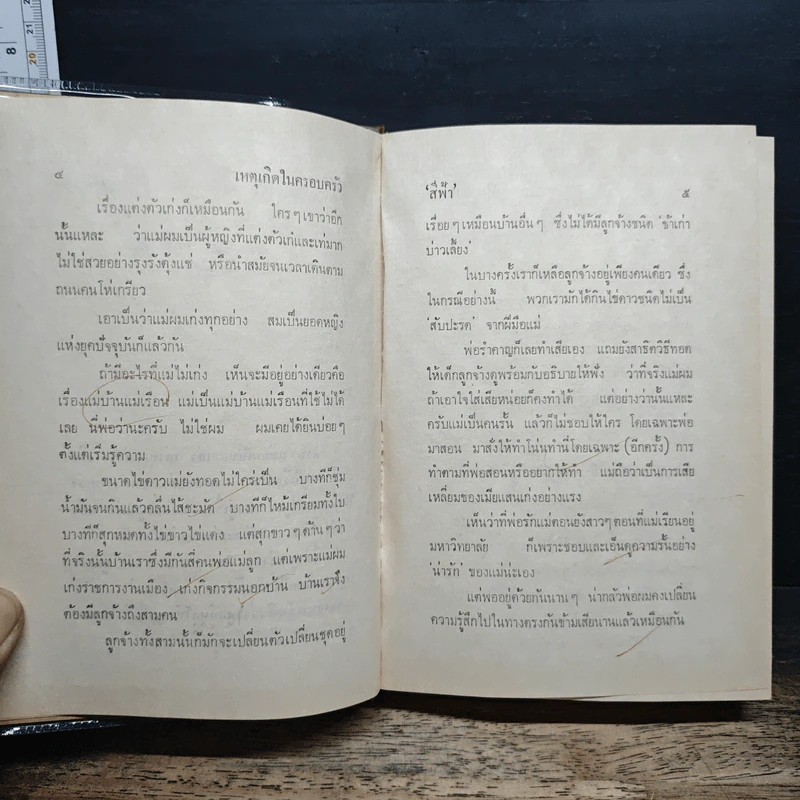 8
20
21
๔
เหตุเกิดในครอบครัว
เรื่องแต่งตัวเก่งก็เหมือนกัน ใครๆเขาว่าอีก
นั้นแหละ ว่าแม่ผมเป็นผู้หญิงที่แต่งตัวเก๋และเท่มาก
ไม่ใช่สวยอย่างรุงรังตุ้งแช่ หรือนำสมัยจนเวลาเดินตาม
ถนนคนโห่เกรียว
เอาเป็นว่าแม่ผมเก่งทุกอย่าง สมเป็นยอดหญิง
แห่งยุคปัจจุบันก็แล้วกัน
ถ้ามีอะไรที่แม่ไม่เก่ง เห็นจะมีอยู่อย่างเดียวคือ
เรื่องแม่บ้านแม่เรือน แม่เป็นแม่บ้านแม่เรือนที่ใช้ไม่ได้
เลย นี่พ่อว่านะครับ ไม่ใช่ผม ผมเคยได้ยินบ่อยๆ
ตั้งแต่เริ่มรู้ความ
ขนาดไข่ดาวแม่ยังทอดไม่ใคร่เป็น บางทีก็ชุ่ม
น้ำมันจนกินแล้วคลื่นไส้ชะมัด บางทีก็ไหม้เกรียมทั้งใบ
บางทีก็สุกหมดทั้งไข่ขาวไข่แดง แต่สุกขาวๆด้านๆว่า
ที่จริงนั้นบ้านเราซึ่งมีกันสี่คนพ่อแม่ลูก แต่เพราะแม่ผม
เก่งราชการงานเมือง เก่งกิจกรรมนอกบ้าน บ้านเราจึง
ต้องมีลูกจ้างถึงสามคน
ลูกจ้างทั้งสามนั้นก็มักจะเปลี่ยนตัวเปลี่ยนชุดอยู่
'สีฟ้า'
๕
เรื่อยๆเหมือนบ้านอื่นๆ ซึ่งไม่ได้มีลูกจ้างชนิด 'ข้าเก่า
บ่าวเลี้ยง'
ในบางครั้งเราก็เหลือลูกจ้างอยู่เพียงคนเดียว ซึ่ง
ในกรณีอย่างนี้ พวกเรามักได้กินไข่ดาวชนิดไม่เป็น
'สับปะรด' จากฝีมือแม่
พ่อรำคาญก็เลยทำเสียเอง แถมยังสาธิตวิธีทอด
ให้เด็กลูกจ้างดูพร้อมกับอธิบายให้ฟัง ว่าที่จริงแม่ผม
ถ้าเอาใจใส่เสียหน่อยก็คงทำได้ แต่อย่างว่านั้นแหละ
ครับแม่เป็นคนรั้น แล้วก็ไม่ชอบให้ใคร โดยเฉพาะพ่อ
มาสอน มาสั่งให้ทำโน่นทำนี่โดยเฉพาะ (อีกครั้ง) การ
ทำตามที่พ่อสอนหรืออยากให้ทำ แม่ถือว่าเป็นการเสีย
เหลี่ยมของเมียแสนเก่งอย่างแรง
เห็นว่าที่พ่อรักแม่ตอนยังสาวๆตอนที่แม่เรียนอยู่
มหาวิทยาลัย ก็เพราะชอบและเอ็นดูความรั้นอย่าง
'น่ารัก' ของแม่น่ะเอง
แต่พออยู่ด้วยกันนานๆ น่ากลัวพ่อผมคงเปลี่ยน
ความรู้สึกไปในทางตรงกันข้ามเสียนานแล้วเหมือนกัน